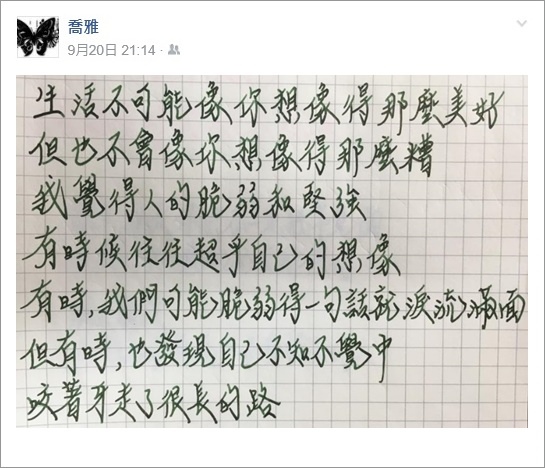 喬雅
9月20日 21:14
生活不可能像你想像得那麼美好
但也不會像你想像得那麼糟
我覺得人的脆弱和堅強
有時候往往超乎自己的想像
有時,我們可能脆弱得一句話就淚流滿面
但有時,也發現自己不知不覺中
咬著牙走了很長的路